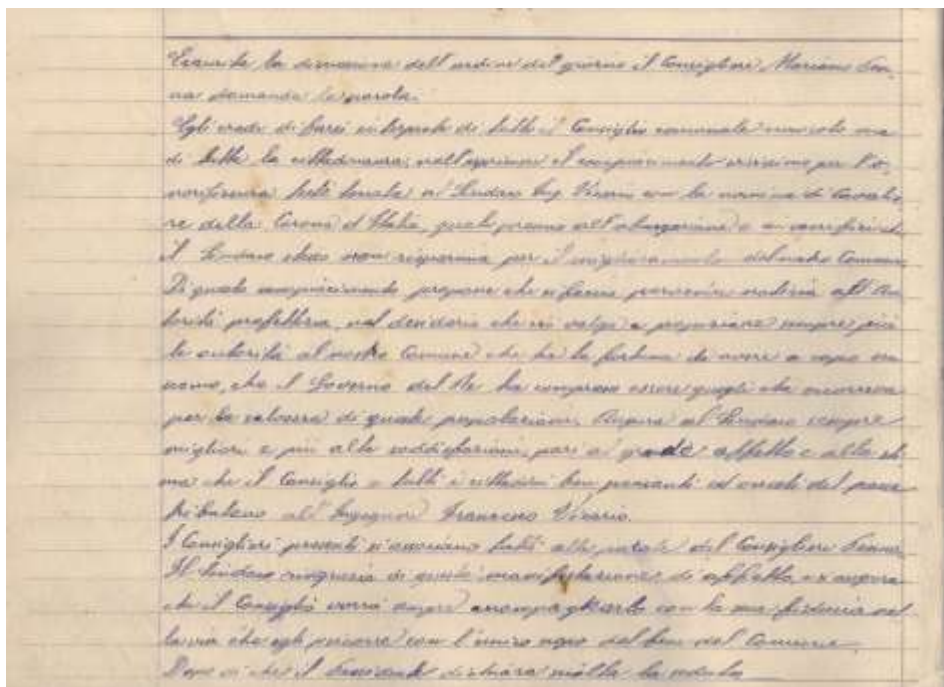 Esaurita la discussione dell'ordine del giorno il Consigliere Mariano
na domanda la parola.
Egli crede di farsi interprete di tutto il Consiglio comunale non solo ma
di tutta la cittadinanza, nell'esprimere il compiacimento vivissimo per l'o-
norificenza testè al Sindaco Ing. Vicario con la nomina di Cavalie-
re della Corona d'Italia, quale premio all'abnegazione e ai sacrifici che
il Sindaco stesso non risparmia per il miglioramento del nostro Comune.
Di quale compiacimento propone che si faccia pervenire notizia all'Au-
torità prefettizia, nel desiderio che
le autorità al nostro Comune che ha la fortuna di avere a capo un
uomo, che il Governo del Re ha compreso essere quegli che occorreva
per la salvezza di queste popolazioni. Augura al Sindaco sempre
migliori e più alte soddisfazioni, pari al grande affetto e alla sti-
ma che il Consiglio e tutti i cittadini ben pensanti ed onesti del paese
tributano all'Ingegnere Francesco Vicario.
I Consiglieri presenti s'associano tutti alle parole del Consigliere
Il Sindaco ringrazia di questa manifestazione di affetto, ed augura
che il Consiglio vorrà sempre accompagnarlo con la sua fiducia nel
la via che egli percorre con l'unico del bene del Comune.
Dopo di che il Presidente dichiara sciolta la seduta